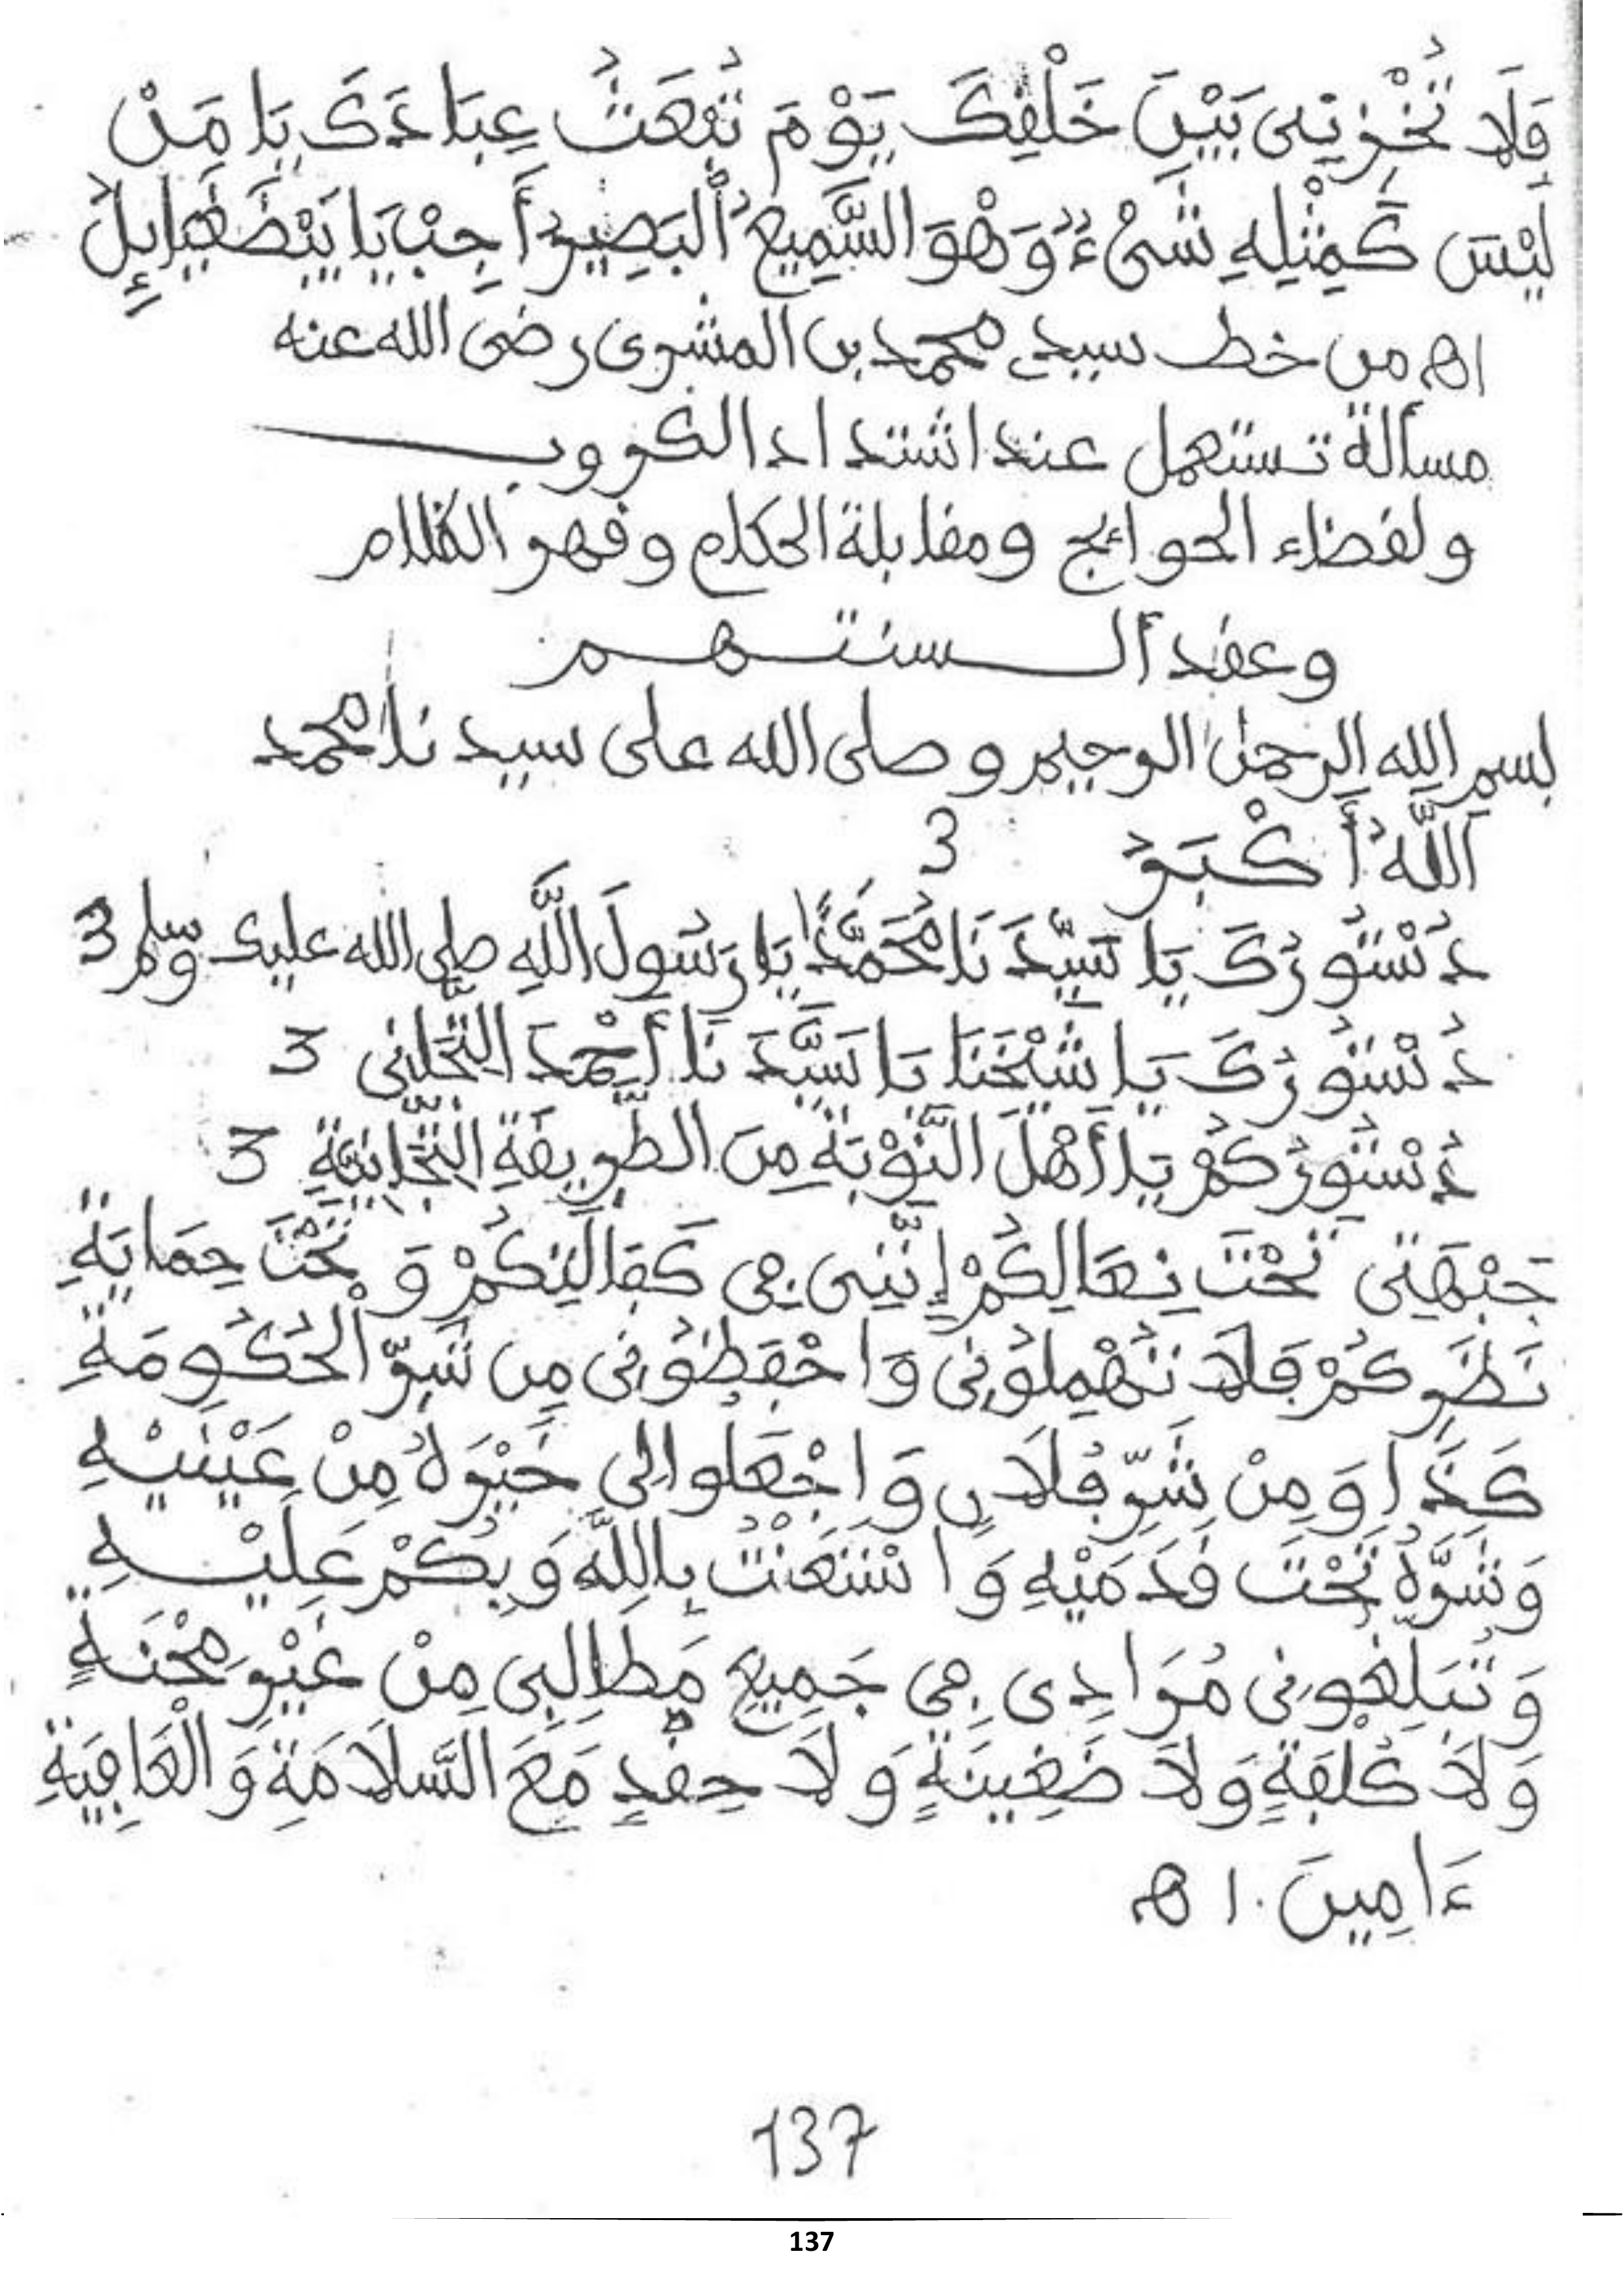 فَلَا تُخْزِنِى بَيْنَ خَلْقِكَ يَوْمَ تُبْعَثُ عِبَادَكَ يَا مَنْ
لَيْسَ كَمِثْلِهِ شَىْءٌ وَهْوَ السَّمِيعُ الْبَصِيرُ أَجِبْ يَا
اه من خط سيدي محمد بن المشرى رضى الله عنه
مسألة تستعمل عند اشتداد الكروب
ولقضاء الحوائج ومقابلة الحكام وقهر الظلام
وعقد ألسنتهم
بسم الله الرحمن الرحيم وصلى الله على سيدنا محمد
اَللَّهُ أَكْبَرُ 3
دُسْتُورُكَ يَا سَيِّدَنَا مُحَمَّدًا يَا رَسُولَ اللَّهِ صلى الله عليك وسلم 3
دُسْتُورُكَ يَا شَيْخَنَا يَا سَيِّدَنَا أَحْمَدَ التِّجَانِى 3
دُسْتُورُكُمْ يَا أَهْلَ النَّوْبَةِ مِنَ الطَّرِيقَةِ التِّجَانِيَّةِ 3
جَبْهَتِى تَحْتَ نِعَالِكُمْ إِنَّنِى فِى كَفَالَتِكُمْ وَتَحْتَ حِمَايَةِ
نَظَرِكُمْ فَلَا تُهْمِلُونِى وَاحْفَظُونِى مِن شَرِّ الْحُكُومَةِ
كَذَا وَمِنْ شَرِّ فُلَانٍ وَاجْعَلُوا لِى خَيْرَهُ مِنْ عَيْنَيْهِ
وَشَرَّهُ تَحْتَ قَدَمَيْهِ وَاسْتَعَنْتُ بِاللَّهِ وَبِكُمْ عَلَيْهِ
وَتُبَلِّغُونِى مُرَادِى فِى جَمِيعِ مَطَالِبِى مِنْ غَيْرِ مِحْنَةٍ
وَلَا كُلْفَةٍ وَلَا ضَغِينَةٍ وَلَا حِقْدٍ مَعَ السَّلَامَةِ وَالْعَافِيَةِ
ءَامِينَ. اه
137
137